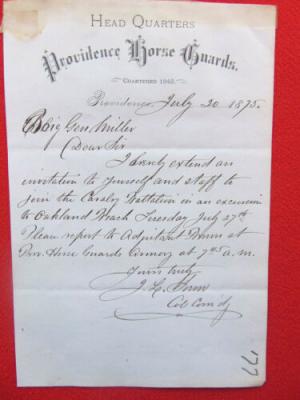 HEAD QUARTERS
Providence Horse Guards.
CHARTERED 1842.
Providence, July 20 1875.
Brig Gen Miller
Dear Sir
I hereby extend an
invitation to yourself and staff to
join the Cavalry Battalion in an excursion
to Oakland Beach Tuesday July 27th
Please report to Adjutant Brown at
Prov. Horse Guards Armory at 7 45 a.m.
Yours truly
J. L.
Col Comdg
'77